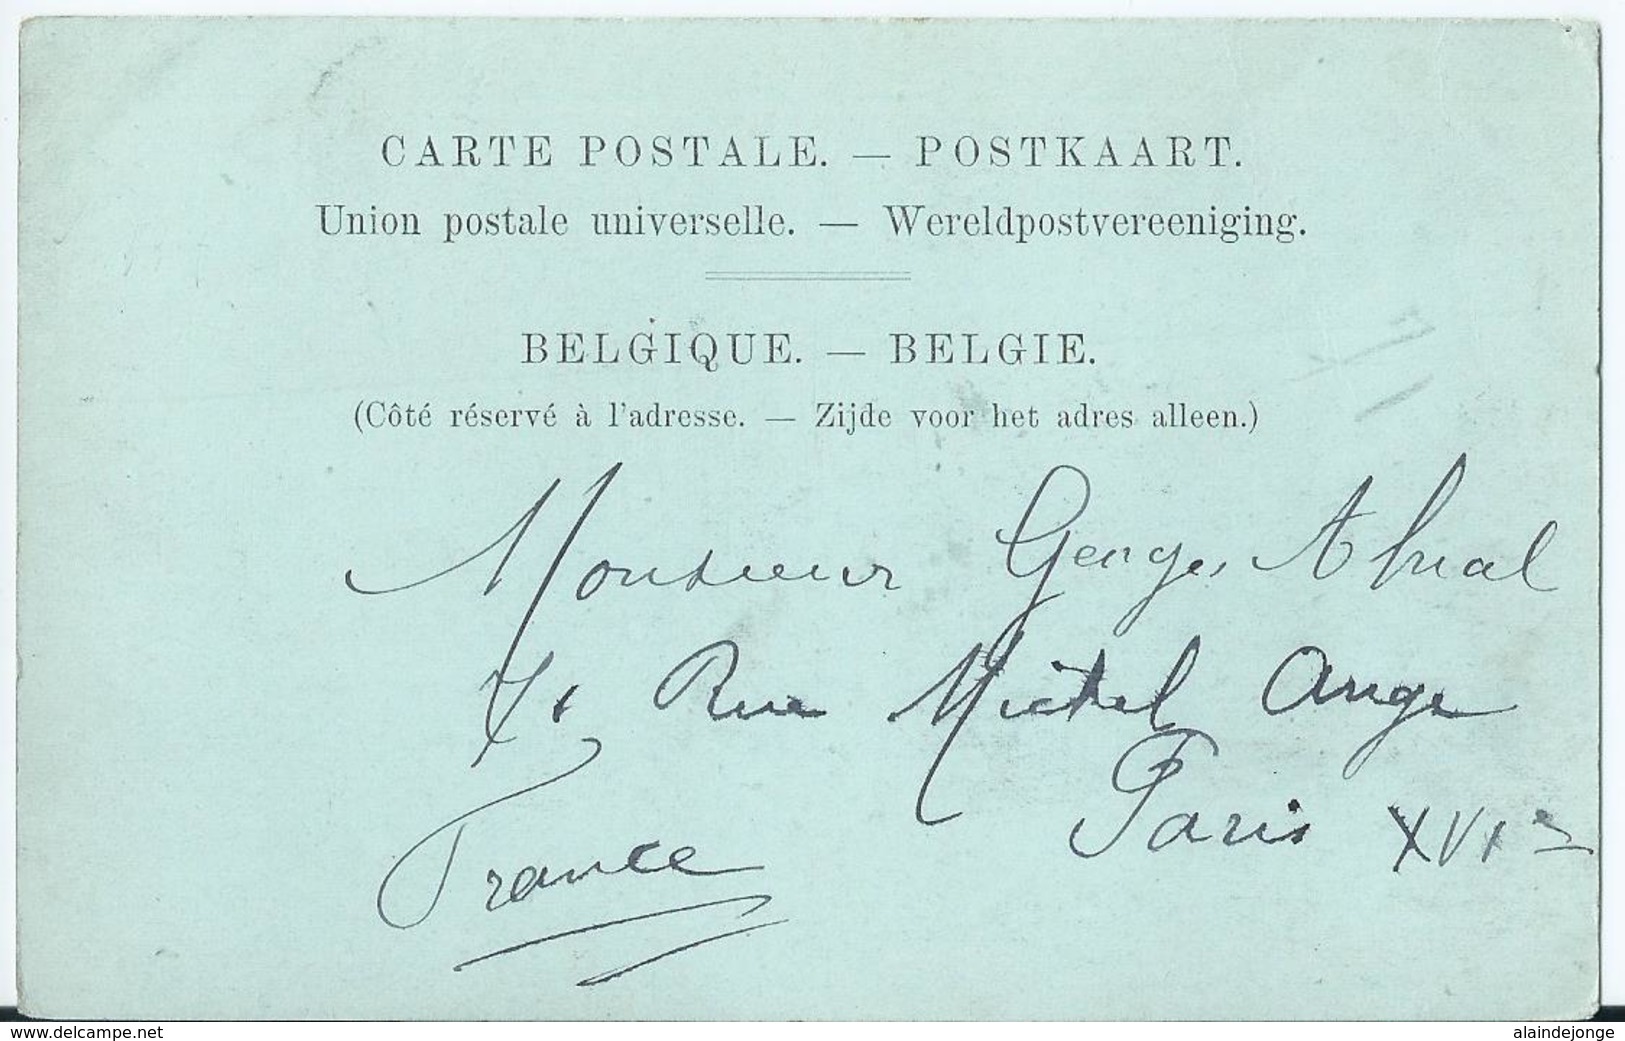 CARTE POSTALE. — POSTKAART.
Union postale universelle. — Wereldpostvereeniging.
BELGIQUE. — BELGIE.
(Côté réservé à l'adresse. — Zijde voor het adres alleen.)
Monsieur Georges
Rue Michel Ange
Paris XVIe
France
www.delcampe.net
alaindejonge